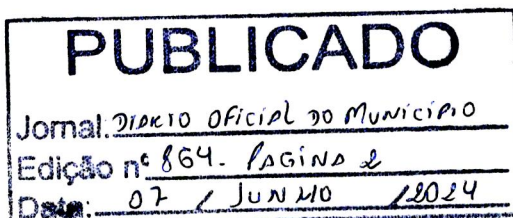 PUBLICADO
Jornal: DIÁRIO OFICIAL DO MUNICÍPIO
Edição nº 864 - PAGINA 2
Data: 07 / JUNHO / 2024